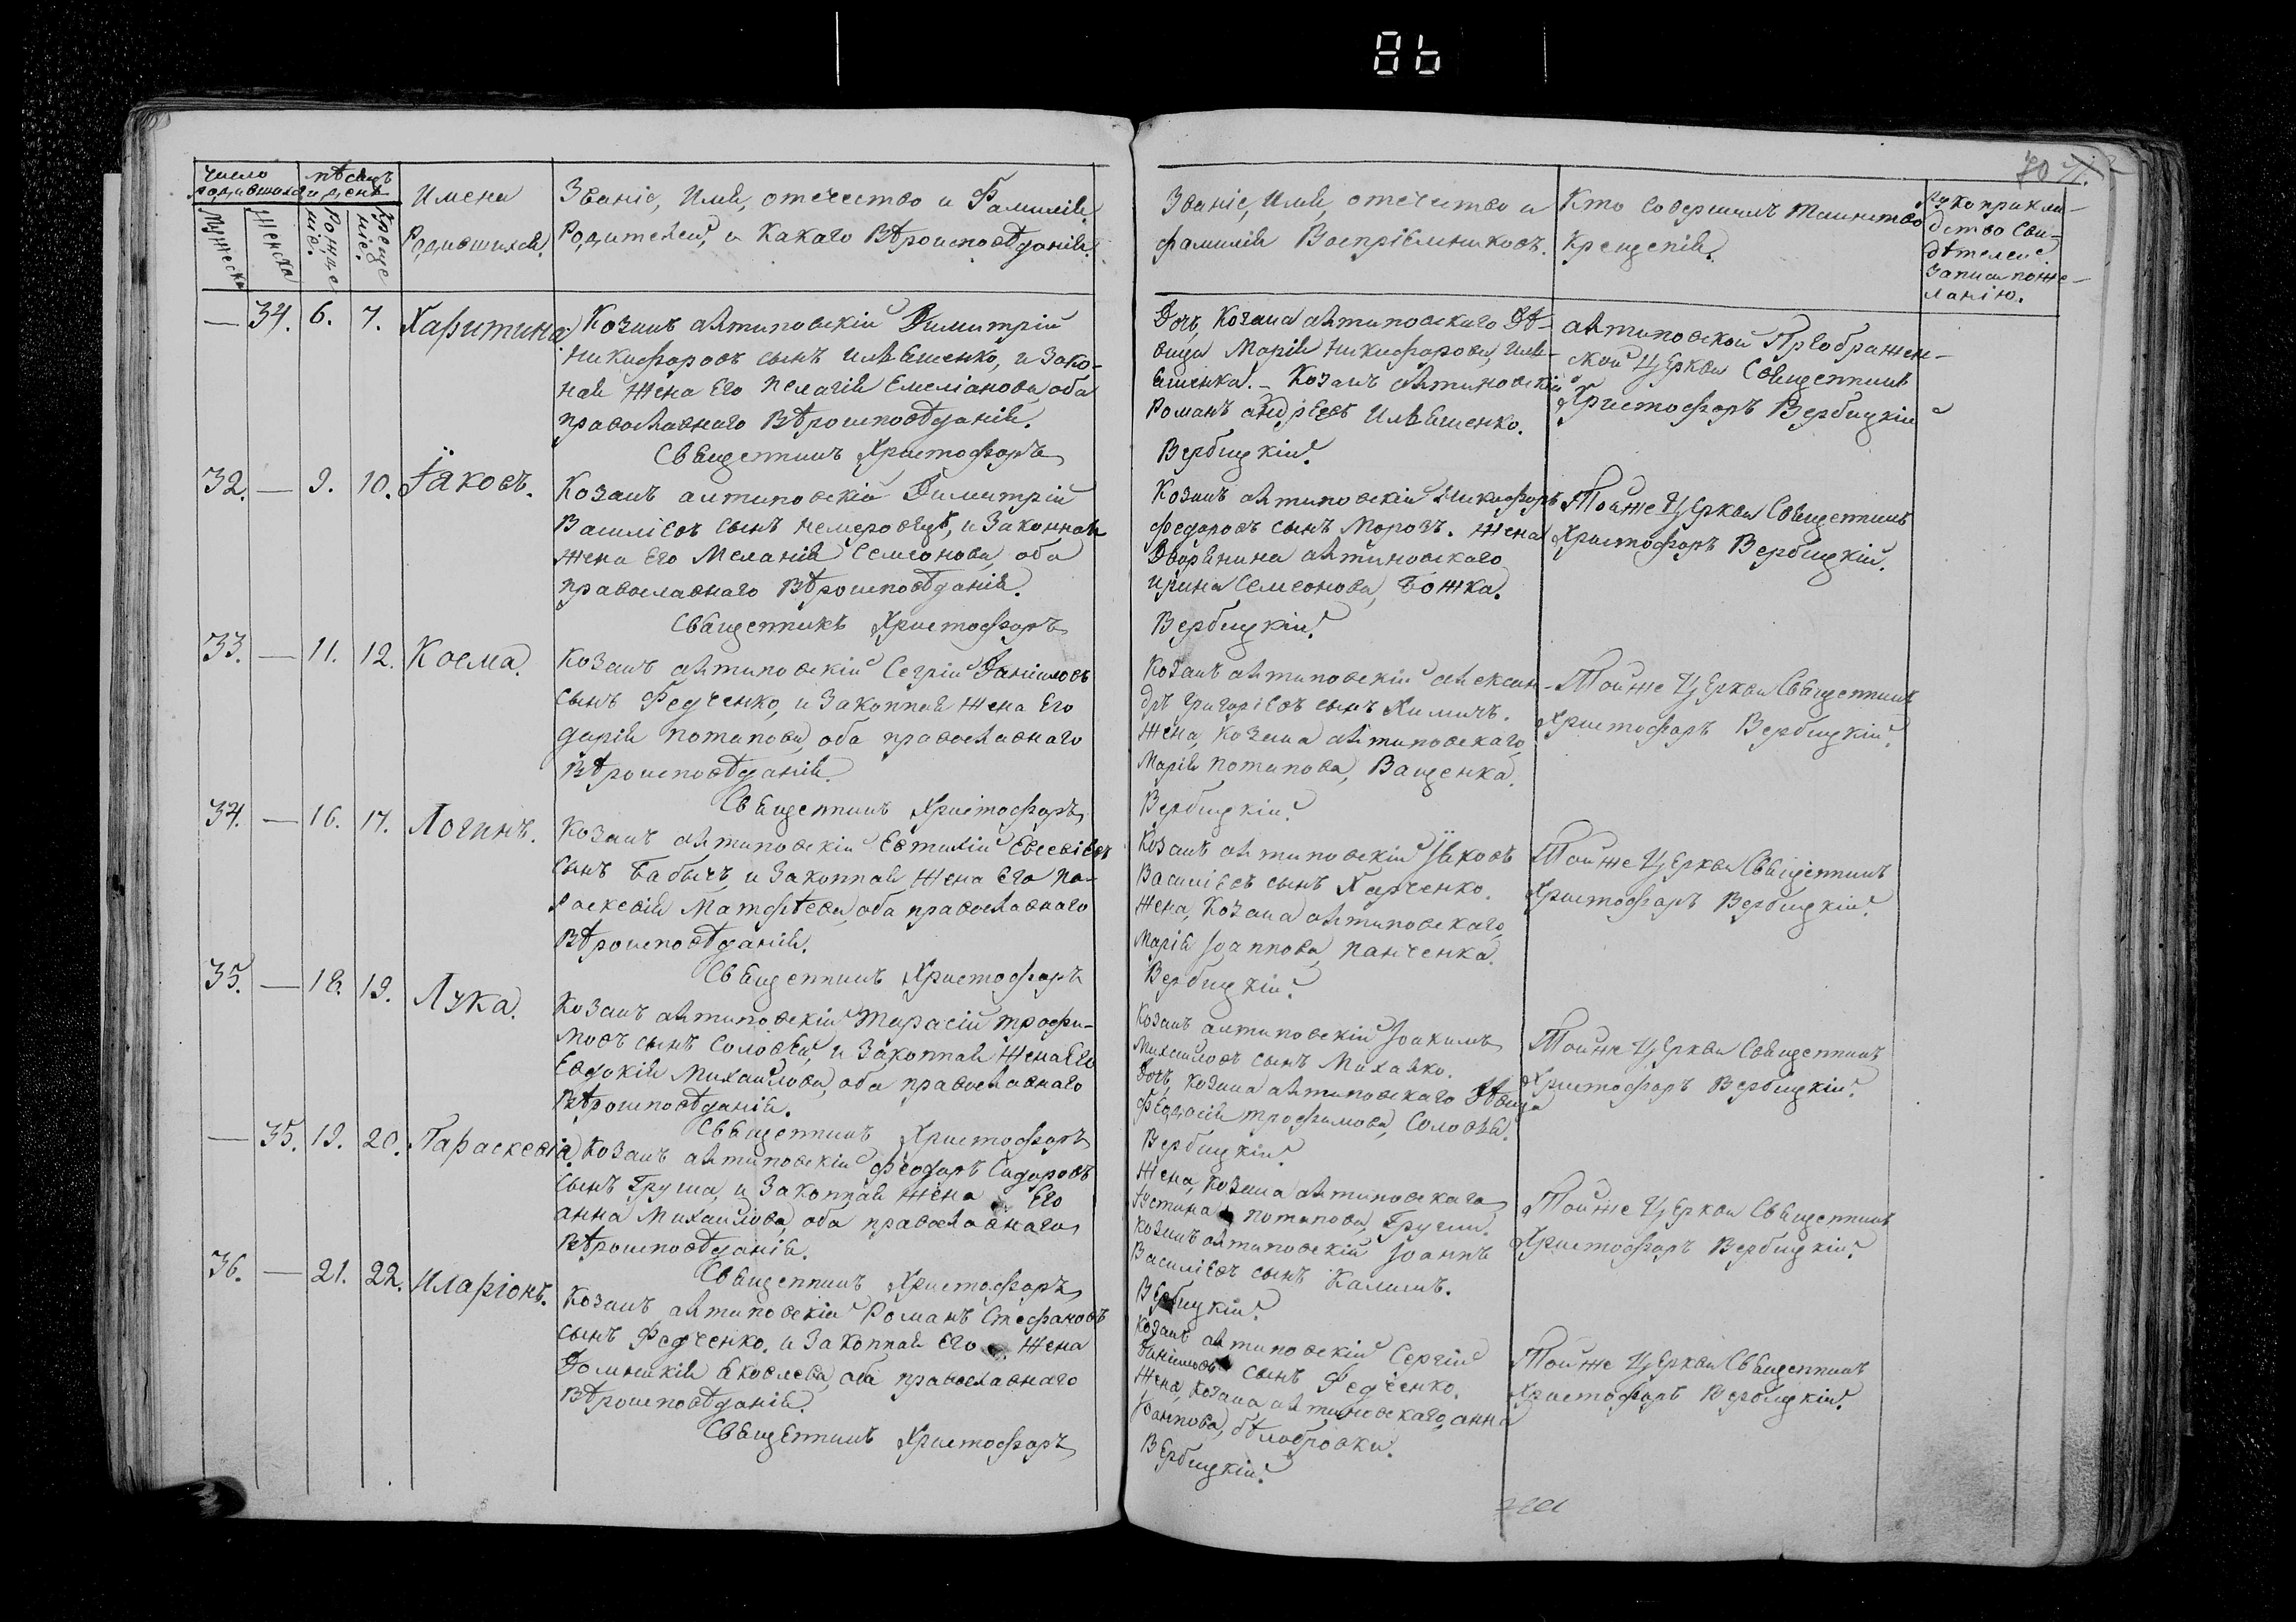 86
70
Число родившихся
Мѣсяцъ и день
Мужеска
Женска
Рожденіе.
Крещеніе.
Имена
Родившихся.
Званіе, Имя, отечество и Фамилія
Родителей, и Какаго Вѣроисповѣданія.
Званіе, Имя, отечество и
фамилія Воспріемниковъ.
Кто совершилъ таинство
Крещенія.
Рукоприкла-
дство сви-
дѣтелей
записи по же-
ланію.
— 34. 6. 7. Харитина
Козакъ алтиновскій Димитрій
Никифоровъ сынъ Ильяшенко, и Зако-
ная Жена Его Пелагія Емеліанова, оба
православнаго Вѣроисповѣданія.
Священникъ Христофоръ
Дочь, Козака алтиновскаго Дѣ-
вица Марія Никифорова, Иль-
яшенка. – Козакъ алтиновскій
Романъ андреевъ Ильяшенко.
Вербицкій.
алтиновской Преображен-
ской Церкви Священникъ
Христофоръ Вербицкій
32. — 9. 10. Іаковъ.
Козакъ алтиновскій Димитрій
Василіевъ сынъ Немеровецъ, и Законная
жена Его Меланія Семеонова, оба
православнаго Вѣроисповѣданія.
Священникъ Христофоръ
Козакъ алтиновскій Никифоръ
федоровъ сынъ Морозъ. Жена
Дворянина алтиновскаго
Ирина Семеонова, Божка.
Вербицкій.
Тойже Церкви Священникъ
Христофоръ Вербицкій.
33. — 11. 12. Косма.
Козакъ алтиновскій Сергій Даніиловъ
сынъ Федченко, и Законная Жена Его
дарія потапова, оба православнаго
Вѣроисповѣданія.
Священникъ Христофоръ
Козакъ алтиновскій алексан-
дръ Григоріевъ сынъ Химичъ.
Жена, Козака алтиновскаго
Марія потапова, Ващенка.
Вербицкій.
Тойже Церкви Священникъ
Христофоръ Вербицкій.
34. — 16. 17. Логинъ.
Козакъ алтиновскій Евтихій Евсевіевъ
сынъ Бабычъ, и Законная Жена Его па-
раскевія Матфѣева, оба православнаго
Вѣроисповѣданія.
Священникъ Христофоръ
Козакъ алтиновскій Іяковъ
Василіевъ сынъ Харченко.
Жена, Козака алтиновскаго
Марія Іоаннова, панченка.
Вербицкій.
Тойже Церкви Священникъ
Христофоръ Вербицкій.
35. — 18. 19. Лука.
Козакъ алтиновскій Тарасій трофи-
мовъ сынъ Соловей, и Законная Жена Его
Евдокія Михаилова, оба православнаго
Вѣроисповѣданія.
Священникъ Христофоръ
Козакъ алтиновскій Іоакимъ
Михаиловъ сынъ Михалко.
Дочь, Козака алтиновскаго Дѣвица
Феодосія трофимова, Соловья.
Вербицкій.
Тойже Церкви Священникъ
Христофоръ Вербицкій.
— 35. 19. 20. Параскевія.
Козакъ алтиновскій феодоръ Сидоровъ
сынъ Груша, и Законная жена Его
анна Михаилова, оба православнаго
Вѣроисповѣданія.
Священникъ Христофоръ
Жена, Козака алтиновскаго
Устина потапова, Груши.
Козакъ алтиновскій Іоаннъ
Василіевъ сынъ Калишъ.
Вербицкій.
Тойже Церкви Священникъ
Христофоръ Вербицкій.
36. — 21. 22. Иларіонъ.
Козакъ алтиновскій Романъ Стефановъ
сынъ Федченко, и Законная Его Жена
Домникія Яковлева, оба православнаго
Вѣроисповѣданія.
Священникъ Христофоръ
Козакъ алтиновскій Сергій
Даніиловъ сынъ Федченко.
Жена, Козака алтиновскаго, анна
Іоаннова, бѣлобровки.
Вербицкій.
Тойже Церкви Священникъ
Христофоръ Вербицкій.